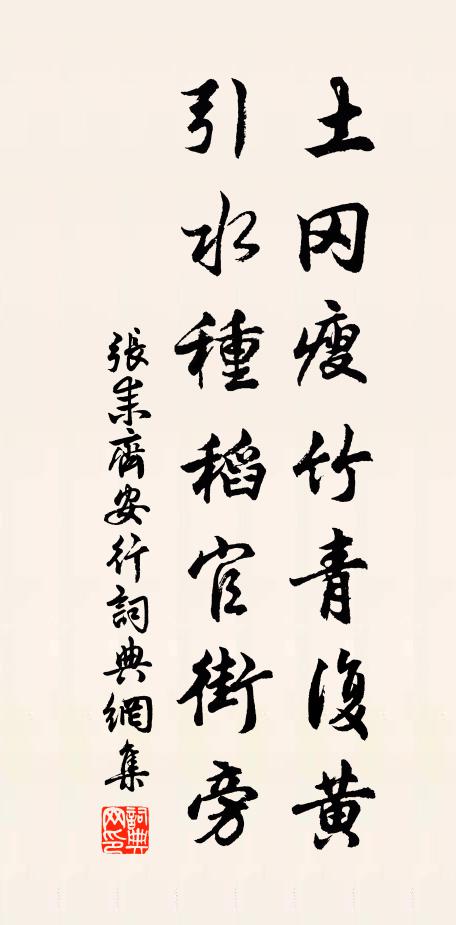 土冈瘦竹青復黄
引水種稻官街旁
張耒齊安行詞典網集
詞典網印